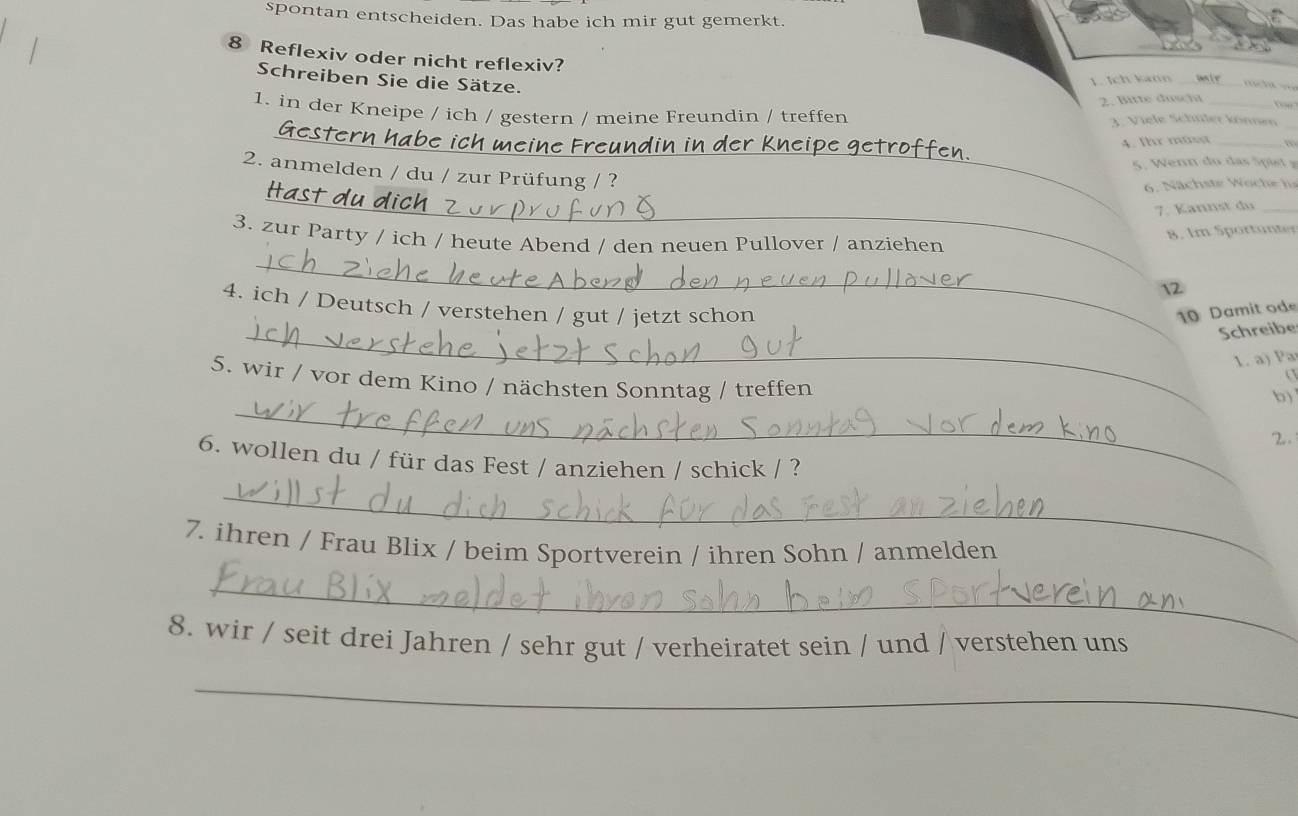 spontan entscheiden. Das habe ich mir gut gemerkt.
8 Reflexiv oder nicht reflexiv?
Schreiben Sie die Sätze.
1. in der Kneipe / ich / gestern / meine Freundin / treffen
Gestern habe ich meine Freundin in der Kneipe getroffen.
2. anmelden / du / zur Prüfung / ?
Hast du dich zur prüfung
3. zur Party / ich / heute Abend / den neuen Pullover / anziehen
ich ziehe heute Abend den neuen pullover
4. ich / Deutsch / verstehen / gut / jetzt schon
ich verstehe jetzt schon gut
5. wir / vor dem Kino / nächsten Sonntag / treffen
wir treffen uns nächsten Sonntag vor dem kino
6. wollen du / für das Fest / anziehen / schick / ?
willst du dich schick für das Fest an ziehen
7. ihren / Frau Blix / beim Sportverein / ihren Sohn / anmelden
Frau Blix meldet ihren sohn beim Sportverein an.
8. wir / seit drei Jahren / sehr gut / verheiratet sein / und / verstehen uns
1. Ich kann mir nicht
2. Bitte duscht
3. Viele Schüler können
4. Ihr müsst
5. Wenn du das Spiel
6. Nächste Woche
7. Kannst du
8. Im Sportunter
12
10 Damit ode
Schreibe
1. a) Pa
b)
2.